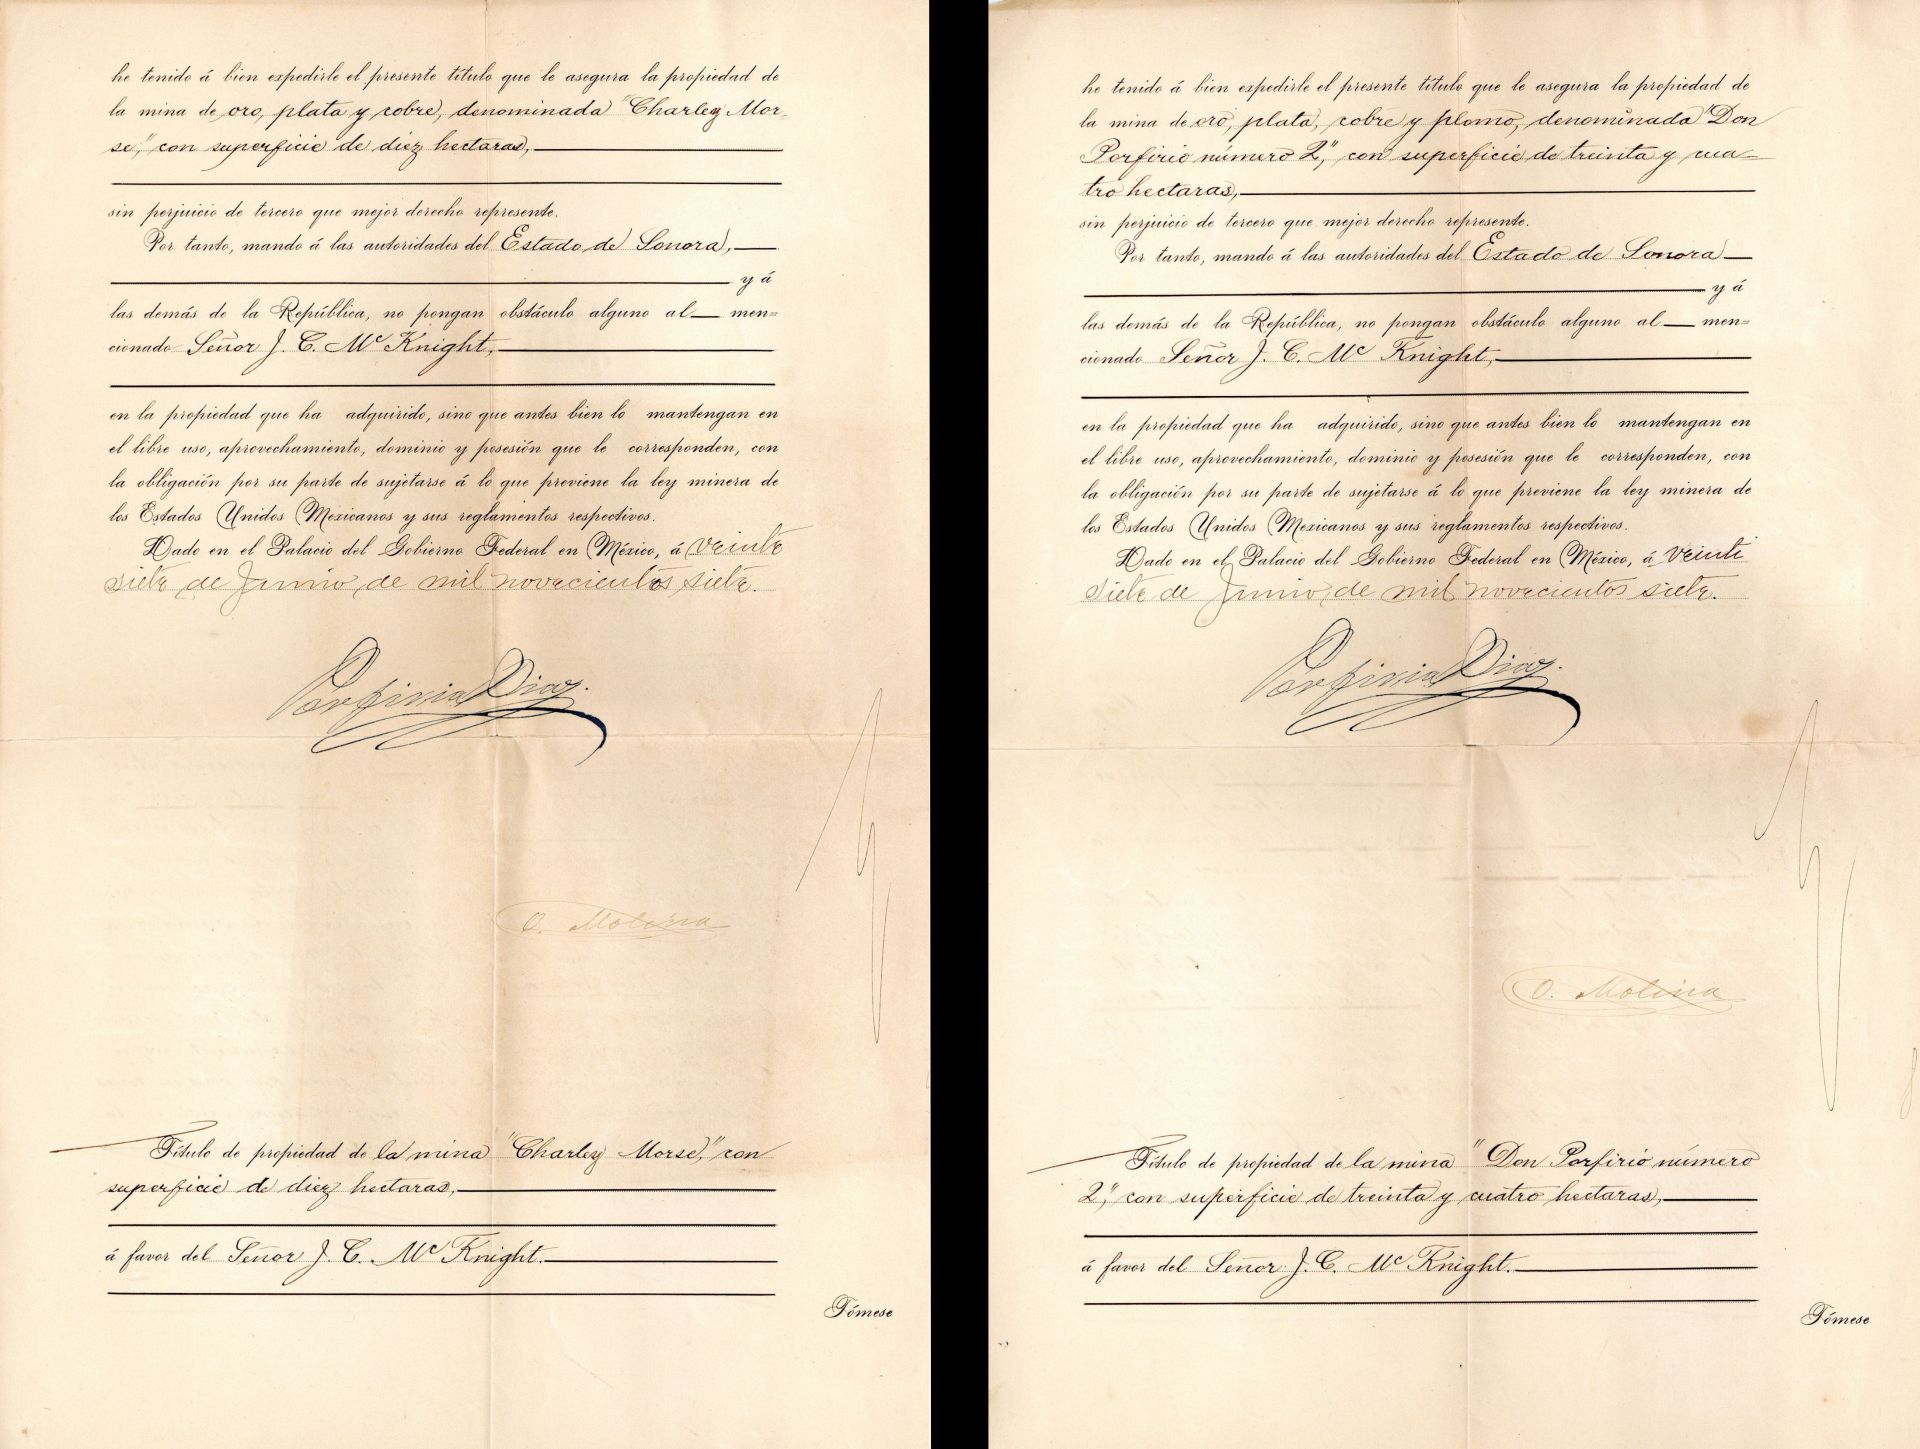 he tenido á bien expedirle el presente título que le asegura la propiedad de
la mina de oro, plata y cobre, denominada "Charley Mor-
se", con superficie de diez hectaras,
sin perjuicio de tercero que mejor derecho represente.
Por tanto, mando á las autoridades del Estado de Sonora,
y á
las demás de la República, no pongan obstáculo alguno al men=
cionado Señor J. C. Mc Knight,
en la propiedad que ha adquirido, sino que antes bien lo mantengan en
el libre uso, aprovechamiento, dominio y posesión que le corresponden, con
la obligación por su parte de sujetarse á lo que previene la ley minera de
los Estados Unidos Mexicanos y sus reglamentos respectivos.
Dado en el Palacio del Gobierno Federal en México, á veinte
siete de Junio de mil novecientos siete.
Porfirio Diaz.
O. Molina
Título de propiedad de la mina "Charley Morse," con
superficie de diez hectaras,
á favor del Señor J. C. Mc Knight.
Tómese
he tenido á bien expedirle el presente título que le asegura la propiedad de
la mina de oro, plata, cobre y plomo, denominada "Don
Porfirio número 2", con superficie de treinta y cua-
tro hectaras,
sin perjuicio de tercero que mejor derecho represente.
Por tanto, mando á las autoridades del Estado de Sonora
y á
las demás de la República, no pongan obstáculo alguno al men=
cionado Señor J. C. Mc Knight,
en la propiedad que ha adquirido, sino que antes bien lo mantengan en
el libre uso, aprovechamiento, dominio y posesión que le corresponden, con
la obligación por su parte de sujetarse á lo que previene la ley minera de
los Estados Unidos Mexicanos y sus reglamentos respectivos.
Dado en el Palacio del Gobierno Federal en México, á veinti
siete de Junio, de mil novecientos siete.
Porfirio Diaz.
O. Molina
Título de propiedad de la mina "Don Porfirio número
2", con superficie de treinta y cuatro hectaras,
á favor del Señor J. C. Mc Knight.
Tómese